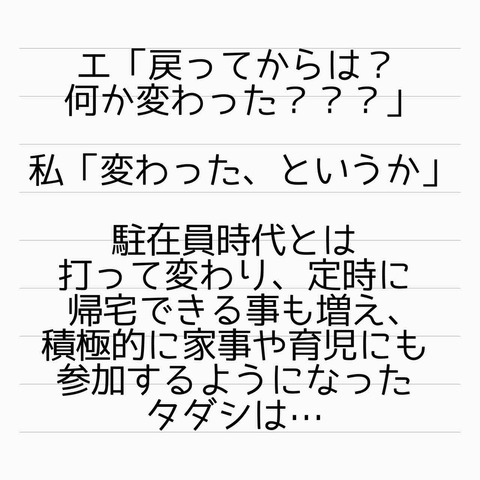 エ「戻ってからは？
何か変わった？？？」
私「変わった、というか」
駐在員時代とは
打って変わり、定時に
帰宅できる事も増え、
積極的に家事や育児にも
参加するようになった
タダシは…